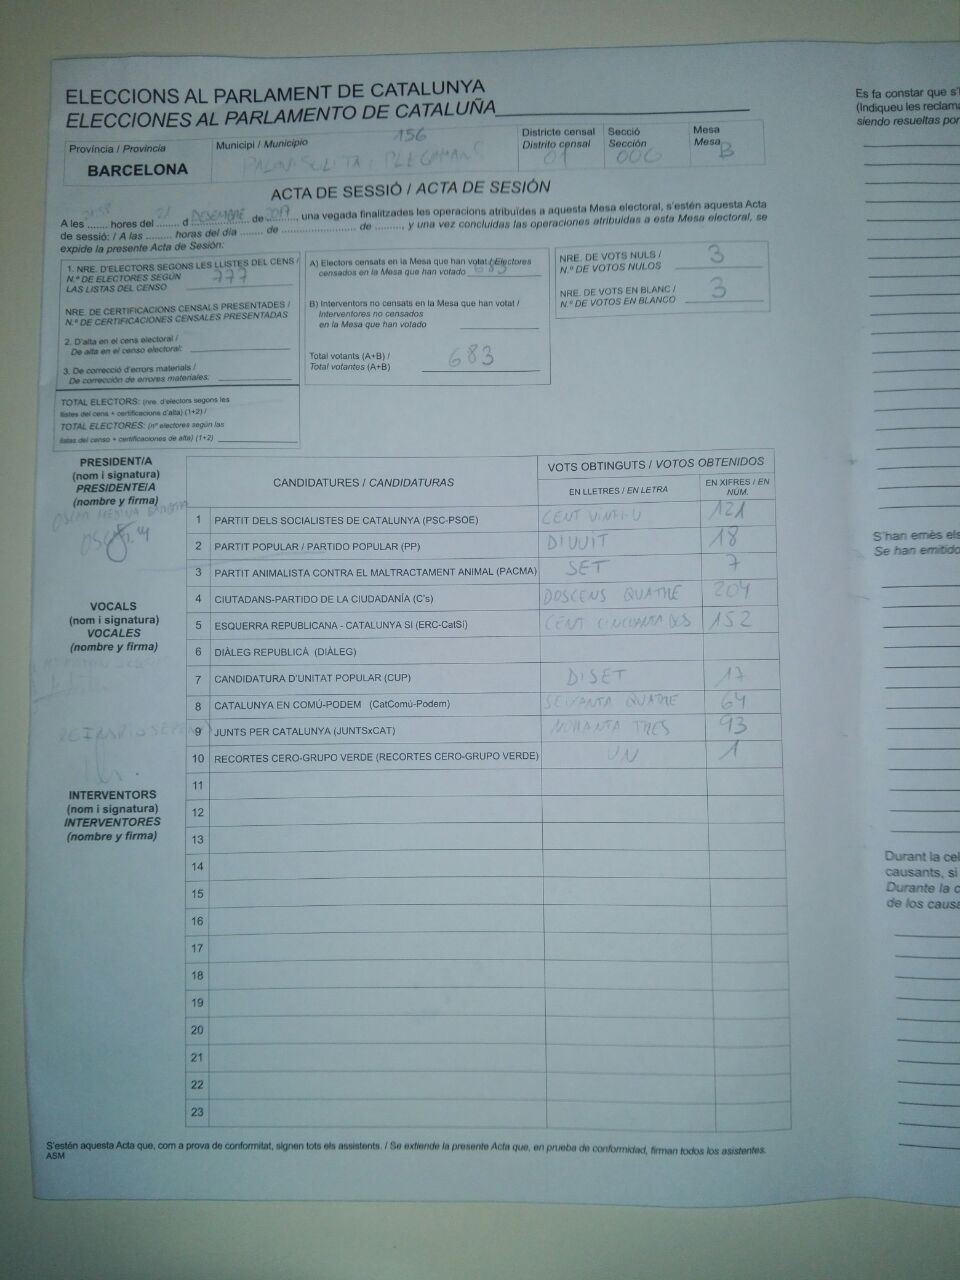 ELECCIONS AL PARLAMENT DE CATALUNYA
ELECCIONES AL PARLAMENTO DE CATALUÑA
Província / Provincia
BARCELONA
Municipi / Municipio
156
PALAU-SOLITÀ I PLEGAMANS
Districte censal
Distrito censal
01
Secció
Sección
006
Mesa
Mesa
B
ACTA DE SESSIÓ / ACTA DE SESIÓN
A les ....... hores del 21 d DESEMBRE de 2017, una vegada finalitzades les operacions atribuïdes a aquesta Mesa electoral, s'estén aquesta Acta
de sessió: / A las ......... horas del día ........ de ........................ de ........., y una vez concluidas las operaciones atribuidas a esta Mesa electoral, se
expide la presente Acta de Sesión:
1. NRE. D'ELECTORS SEGONS LES LLISTES DEL CENS /
N.º DE ELECTORES SEGÚN
LAS LISTAS DEL CENSO
777
NRE. DE CERTIFICACIONS CENSALS PRESENTADES /
N.º DE CERTIFICACIONES CENSALES PRESENTADAS
2. D'alta en el cens electoral /
De alta en el censo electoral:
3. De correcció d'errors materials /
De corrección de errores materiales:
TOTAL ELECTORS: (nre. d'electors segons les
llistes del cens + certificacions d'alta) (1+2) /
TOTAL ELECTORES: (nº electores según las
listas del censo + certificaciones de alta) (1+2)
A) Electors censats en la Mesa que han votat / Electores
censados en la Mesa que han votado 683
B) Interventors no censats en la Mesa que han votat /
Interventores no censados
en la Mesa que han votado
Total votants (A+B) /
Total votantes (A+B)
683
NRE. DE VOTS NULS /
N.º DE VOTOS NULOS
3
NRE. DE VOTS EN BLANC /
N.º DE VOTOS EN BLANCO
3
PRESIDENT/A
(nom i signatura)
PRESIDENTE/A
(nombre y firma)
VOCALS
(nom i signatura)
VOCALES
(nombre y firma)
INTERVENTORS
(nom i signatura)
INTERVENTORES
(nombre y firma)
CANDIDATURES / CANDIDATURAS
VOTS OBTINGUTS / VOTOS OBTENIDOS
EN LLETRES / EN LETRA
EN XIFRES / EN
NÚM.
1 PARTIT DELS SOCIALISTES DE CATALUNYA (PSC-PSOE) CENT VINT-I-U 121
2 PARTIT POPULAR / PARTIDO POPULAR (PP) DIVUIT 18
3 PARTIT ANIMALISTA CONTRA EL MALTRACTAMENT ANIMAL (PACMA) SET 7
4 CIUTADANS-PARTIDO DE LA CIUDADANÍA (C's) DOSCENS QUATRE 204
5 ESQUERRA REPUBLICANA - CATALUNYA SI (ERC-CatSí) CENT CINQUANTA DOS 152
6 DIÀLEG REPUBLICÀ (DIÀLEG)
7 CANDIDATURA D'UNITAT POPULAR (CUP) DISET 17
8 CATALUNYA EN COMÚ-PODEM (CatComú-Podem) SEIXANTA QUATRE 64
9 JUNTS PER CATALUNYA (JUNTSxCAT) NORANTA TRES 93
10 RECORTES CERO-GRUPO VERDE (RECORTES CERO-GRUPO VERDE) UN 1
11
12
13
14
15
16
17
18
19
20
21
22
23
S'estén aquesta Acta que, com a prova de conformitat, signen tots els assistents. / Se extiende la presente Acta que, en prueba de conformidad, firman todos los asistentes.
ASM
Es fa constar que s'
(Indiqueu les reclama
siendo resueltas por
S'han emès els
Se han emitido
Durant la cel
causants, si
Durante la c
de los causa